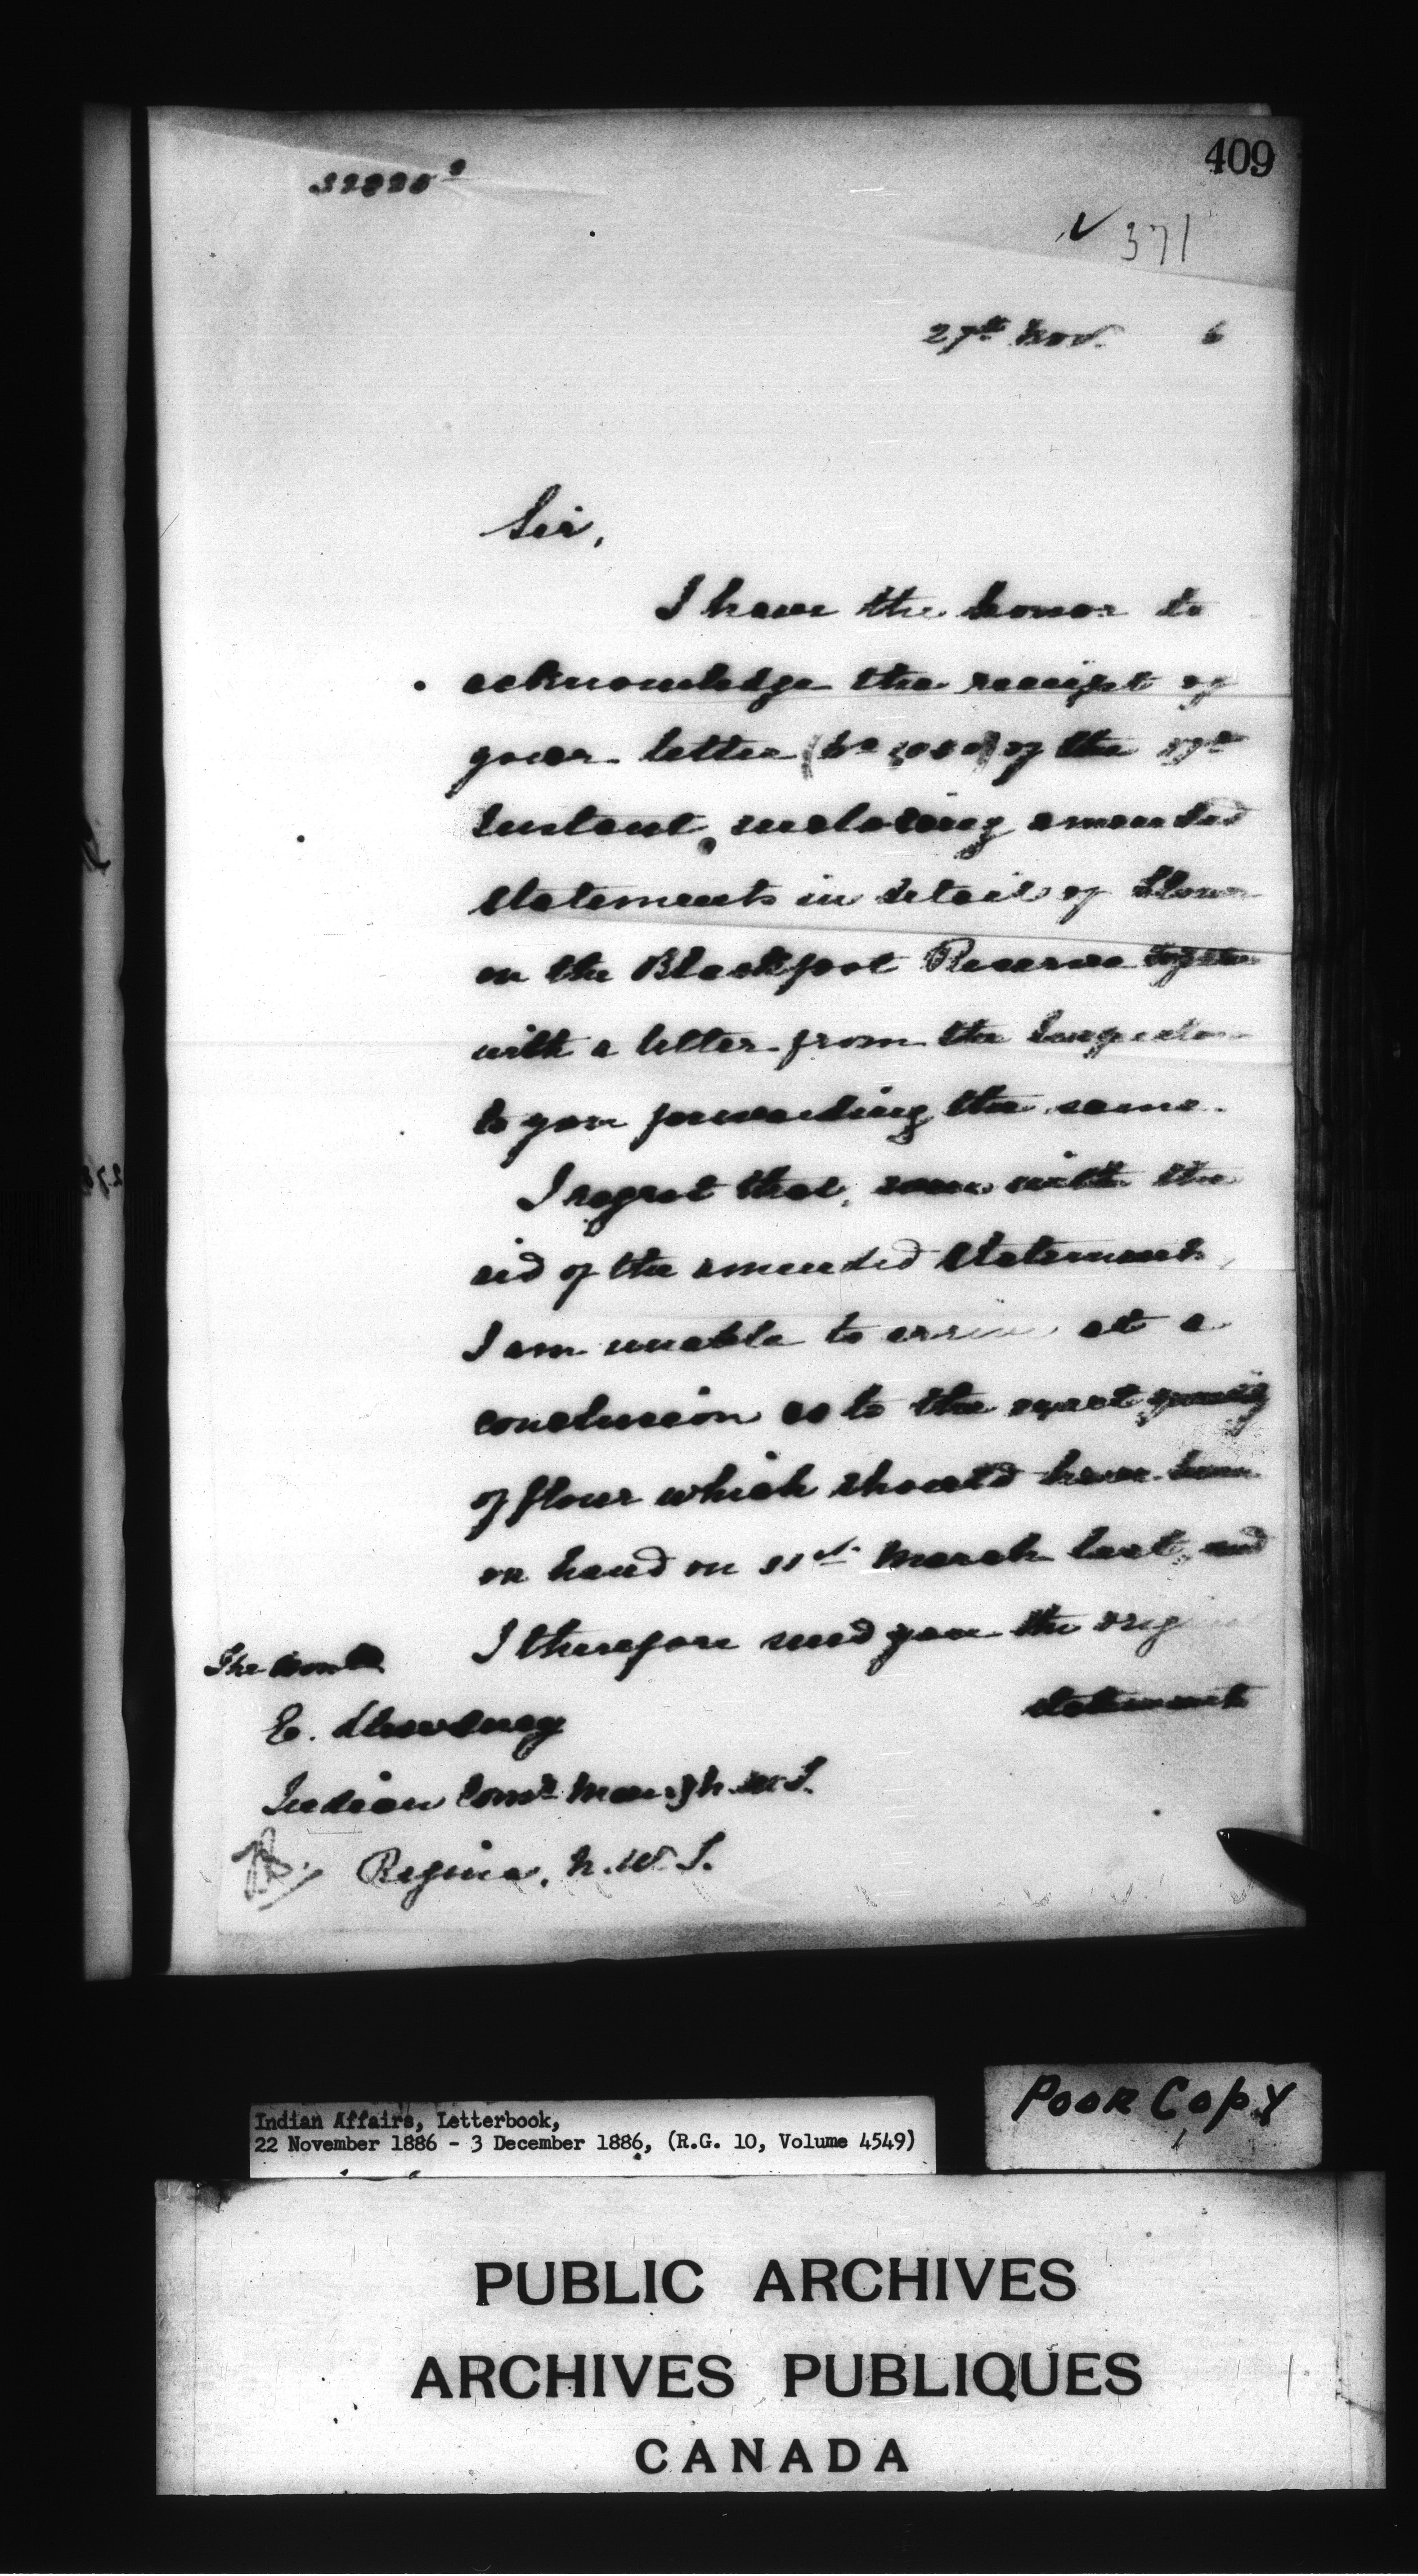 409
371
27th Nov. 6
Sir,
I have the honor to
acknowledge the receipt of
your letter of the
Instant, inclosing amended
statements in detail of flour
on the Blackfoot Reserve together
with a letter from the Inspector
to you forwarding the same.
I regret that, even with the
aid of the amended statements,
I am unable to arrive at a
conclusion as to the exact quantity
of flour which should have been
on hand on 31st March last, and
I therefore send you the
statements
The
E. Dewdney
Indian Comr Man. & N.W.T.
Regina, N.W.T.
Indian Affairs, Letterbook,
22 November 1886 - 3 December 1886, (R.G. 10, Volume 4549)
POOR COPY
PUBLIC ARCHIVES
ARCHIVES PUBLIQUES
CANADA